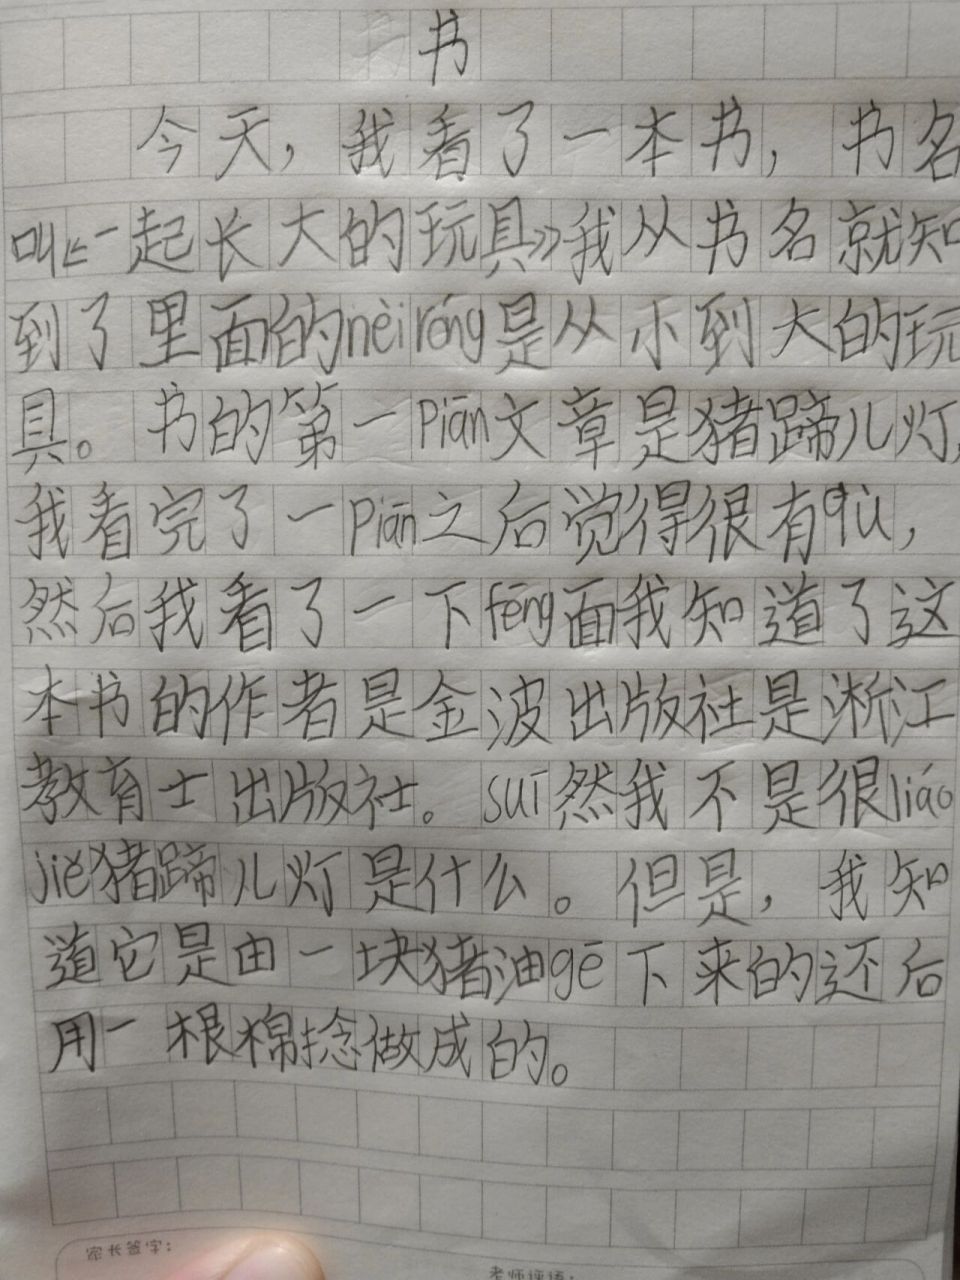 书
今天，我看了一本书，书名
叫《一起长大的玩具》我从书名就知
到了里面的nèiróng是从小到大的玩
具。书的第一piān文章是猪蹄儿灯，
我看完了一piān之后觉得很有qù，
然后我看了一下fēng面我知道了这
本书的作者是金波出版社是淅江
教育士出版社。suī然我不是很liáo
jiě猪蹄儿灯是什么。但是，我知
道它是由一块猪油gē下来的还后
用一根棉捻做成的。
家长签字：
老师评语：